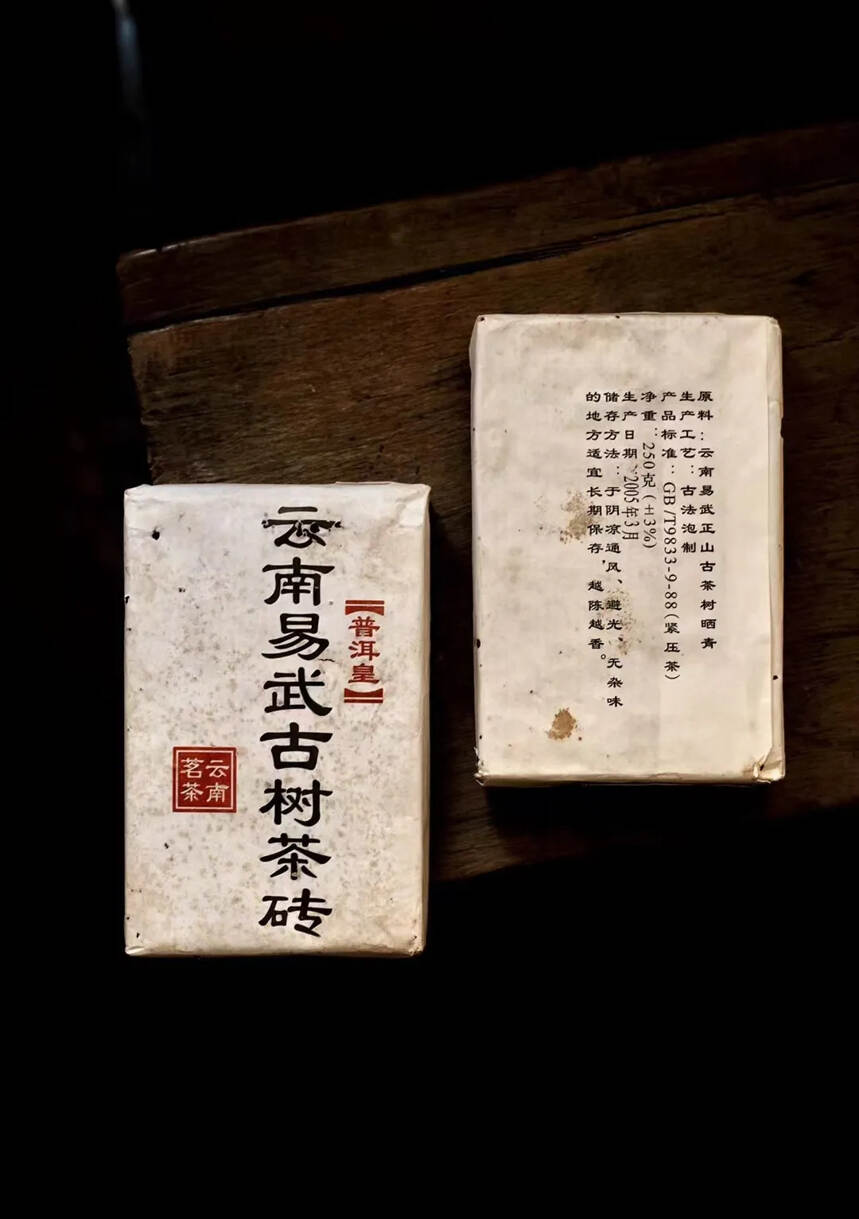 云南易武古树茶砖
【普洱皇】
云南
茗茶
原料：云南易武正山古茶树晒青
生产工艺：古法泡制
产品标准：GB/T9833-9-88(紧压茶)
净重：250克(±3%)
生产日期：2005年3月
储存方法：于阴凉通风、避光、无杂味
的地方适宜长期保存，越陈越香。